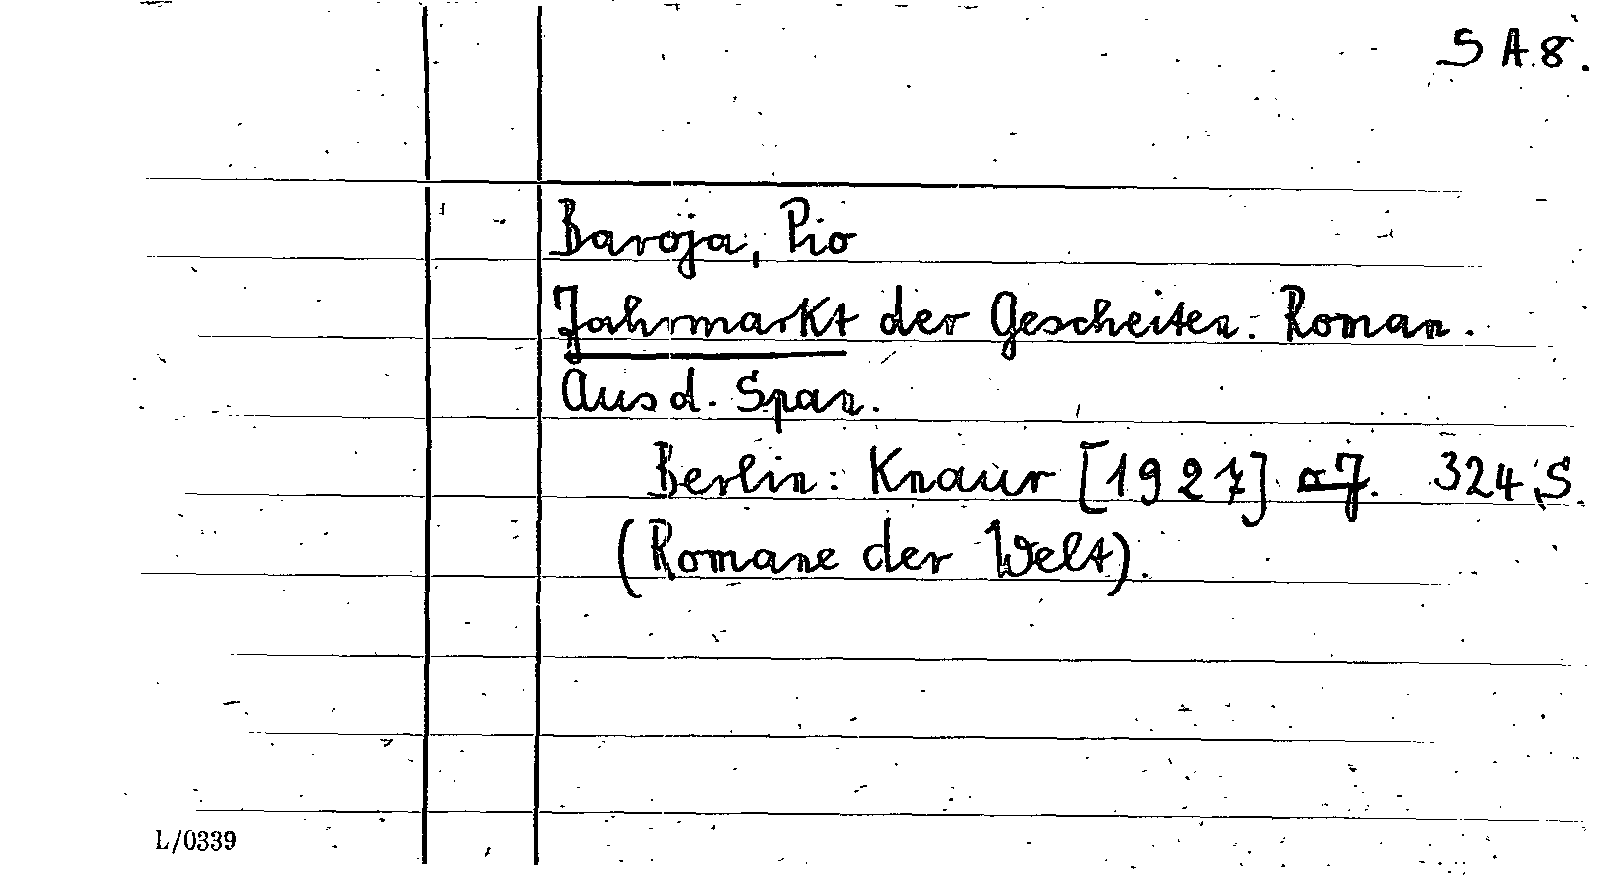 S A 8.
Baroja, Pio
Jahrmarkt der Gescheiten. Roman.
Aus d. Span.
Berlin: Knaur [1927]. 324 S.
(Romane der Welt).
L/0339